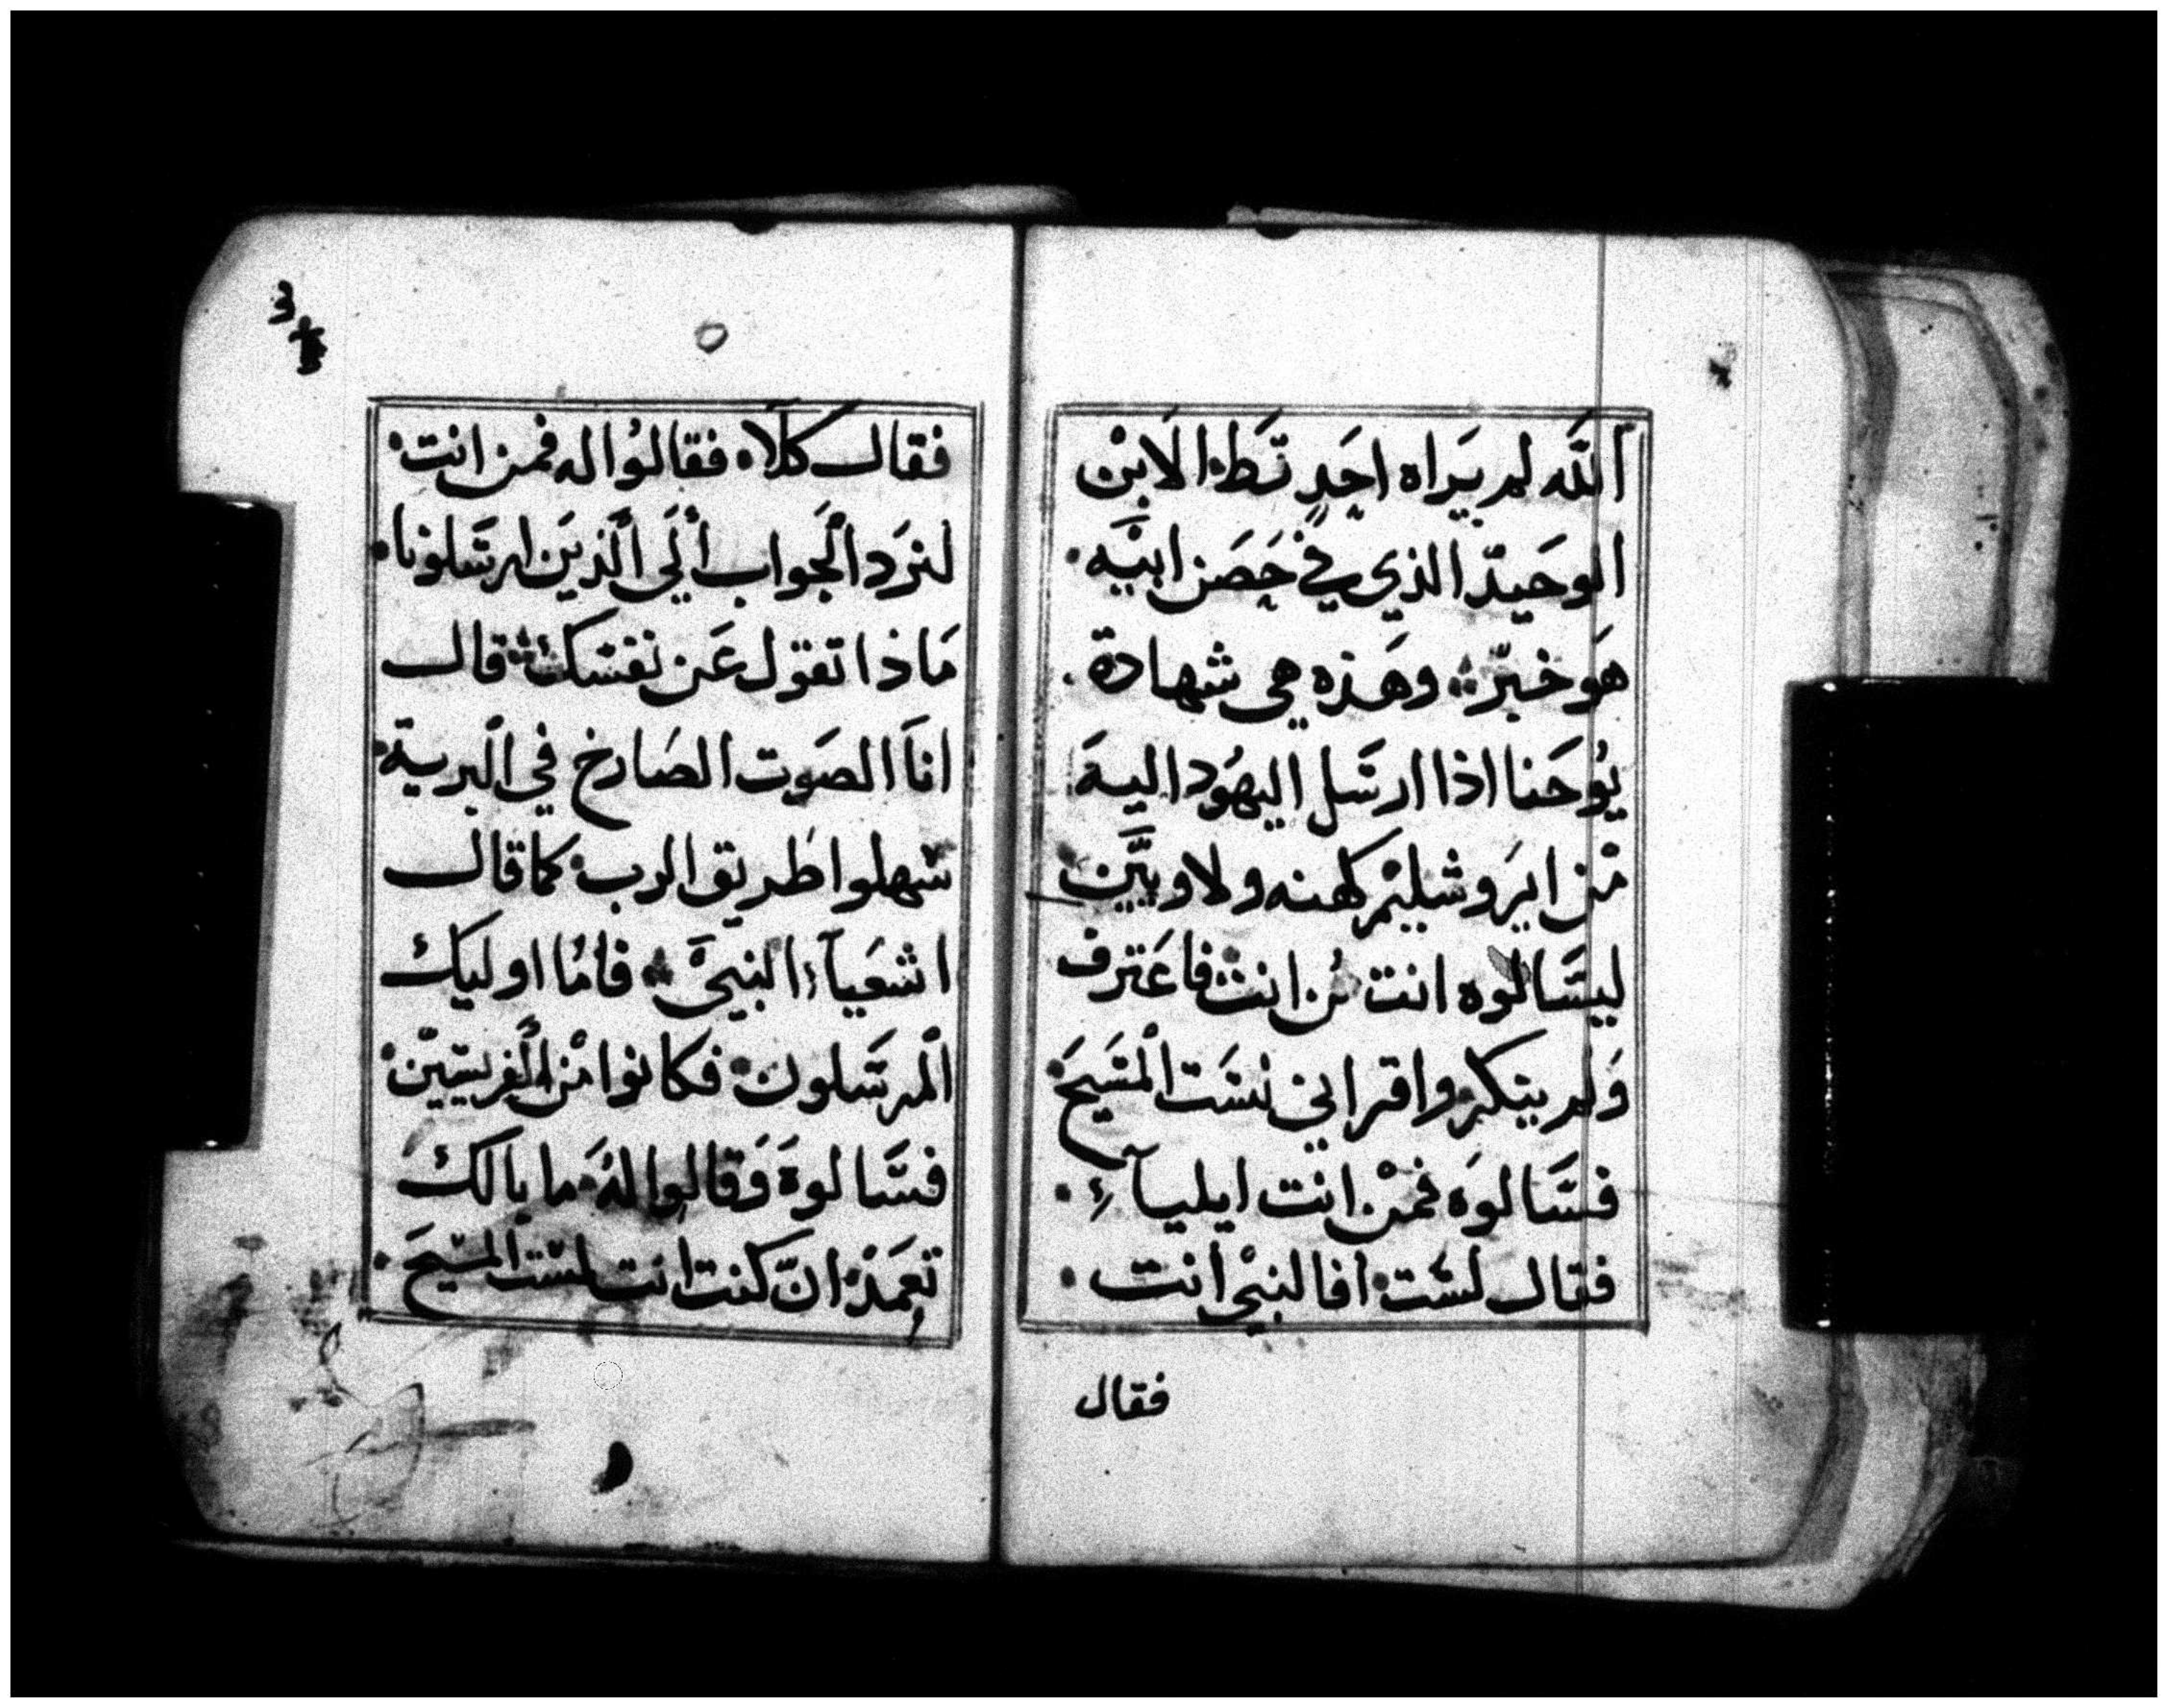 اَللَّه لم يَراه احَدٍ قَط الاَبنْ
الوحَيدّ الذي في حَصَن ابيَه.
هَو خبّر ؞ وهَذه هي شهادة.
يُوحَنا اذا ارسَل اليهُود اليهَ
مْن ايرَوشليْم كهنه ولاوييَّن
ليسَّالوه انت مُن انت ؞ فاعَترف
وَلم ينكر واقر اني لسَت الْمسَيحَ
فسَّالوَه فمنْ انت ايليآء.
فقال لسَت افا لنبيْ انت.
فقال
٥
فقال كَلَّا. فقالوُا له فمن انت
لنرَد الَجواب ألَي اَلذيَن ارسَلونا.
مَاذا تقول عَن نفسَك ؞ قال
اناَ الصَوت الصَارخ في الْبرية
سَهلوا طريق الرب كما قال
اشعَيآء النبيَّ ؞ فامُا اوليك
الْمرسَلون فكانوا مْن الَفريسيّن
فسَّالوهَ وَقالوا لهُ ما بالك
تعمَدْ انّ كنت انت لسَت المسَيحَ.